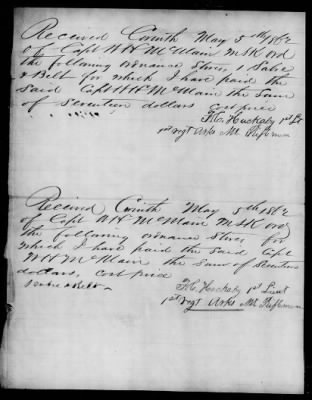 Received Corinth May 5th 1862
of Capt WH McMain MSK ord
the following ordnance Stores, 1 Sabre
& Belt for which I have paid the
said Capt WH McMain the Sum
of Seventeen dollars cost price
F.C. Huckaby 1st Lt
1st regt Arks Mt Riflemen
Received Corinth May 5th 1862
of Capt WH McMain MSK ord
the following ordnance Stores, for
which I have paid the said Capt
WH McMain the Sum of Seventeen
dollars, cost price
1 Sabre & Belt
F.C. Huckaby 1st Lieut
1st regt Arks Mt Riflemen